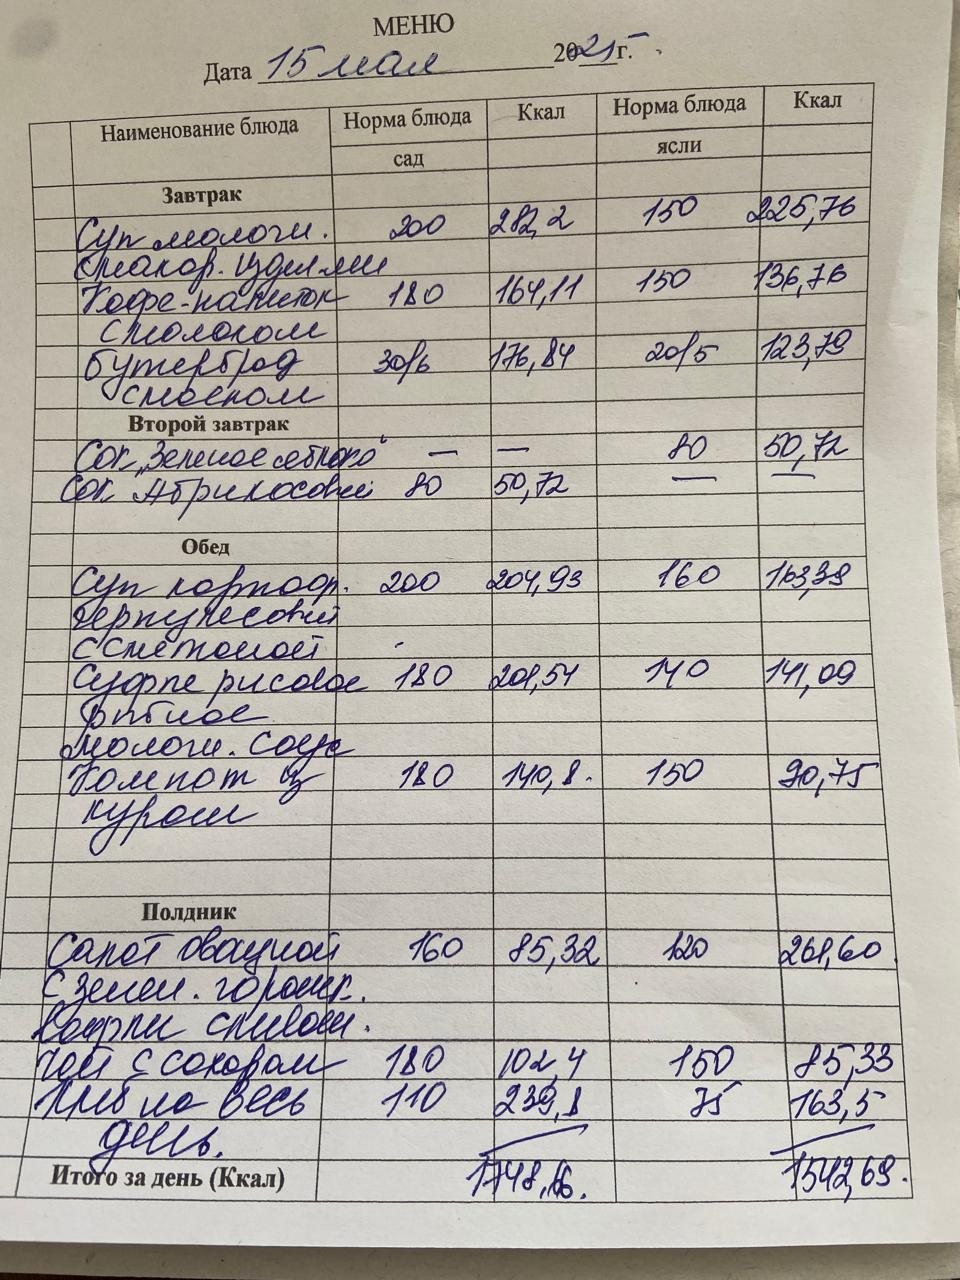 МЕНЮ
Дата 15 мая 2025 г.
Наименование блюда Норма блюда Ккал Норма блюда Ккал
сад ясли
Завтрак
Суп молочн. 200 282,2 150 225,76
с макор. издел-ми
Кофе-напиток 180 164,11 150 136,76
с молоком
Бутерброд 30/6 176,84 20/5 123,79
с маслом
Второй завтрак
Сок „Зеленое яблоко“ — — 80 50,72
Сок Абрикосовый 80 50,72 — —
Обед
Суп картоф. 200 204,93 160 163,39
с сметаной
Суфле рисовое 180 201,54 140 141,09
рыбное
молочн. соус
Компот из 180 140,8. 150 90,75
кураги
Полдник
Салат овощной 160 85,32 120 261,60
с зелен. горошк.
Чай с сахаром 180 102,4 150 85,33
Хлеб на весь 110 239,8 75 163,5
день.
Итого за день (Ккал) 1748,66. 1542,69.